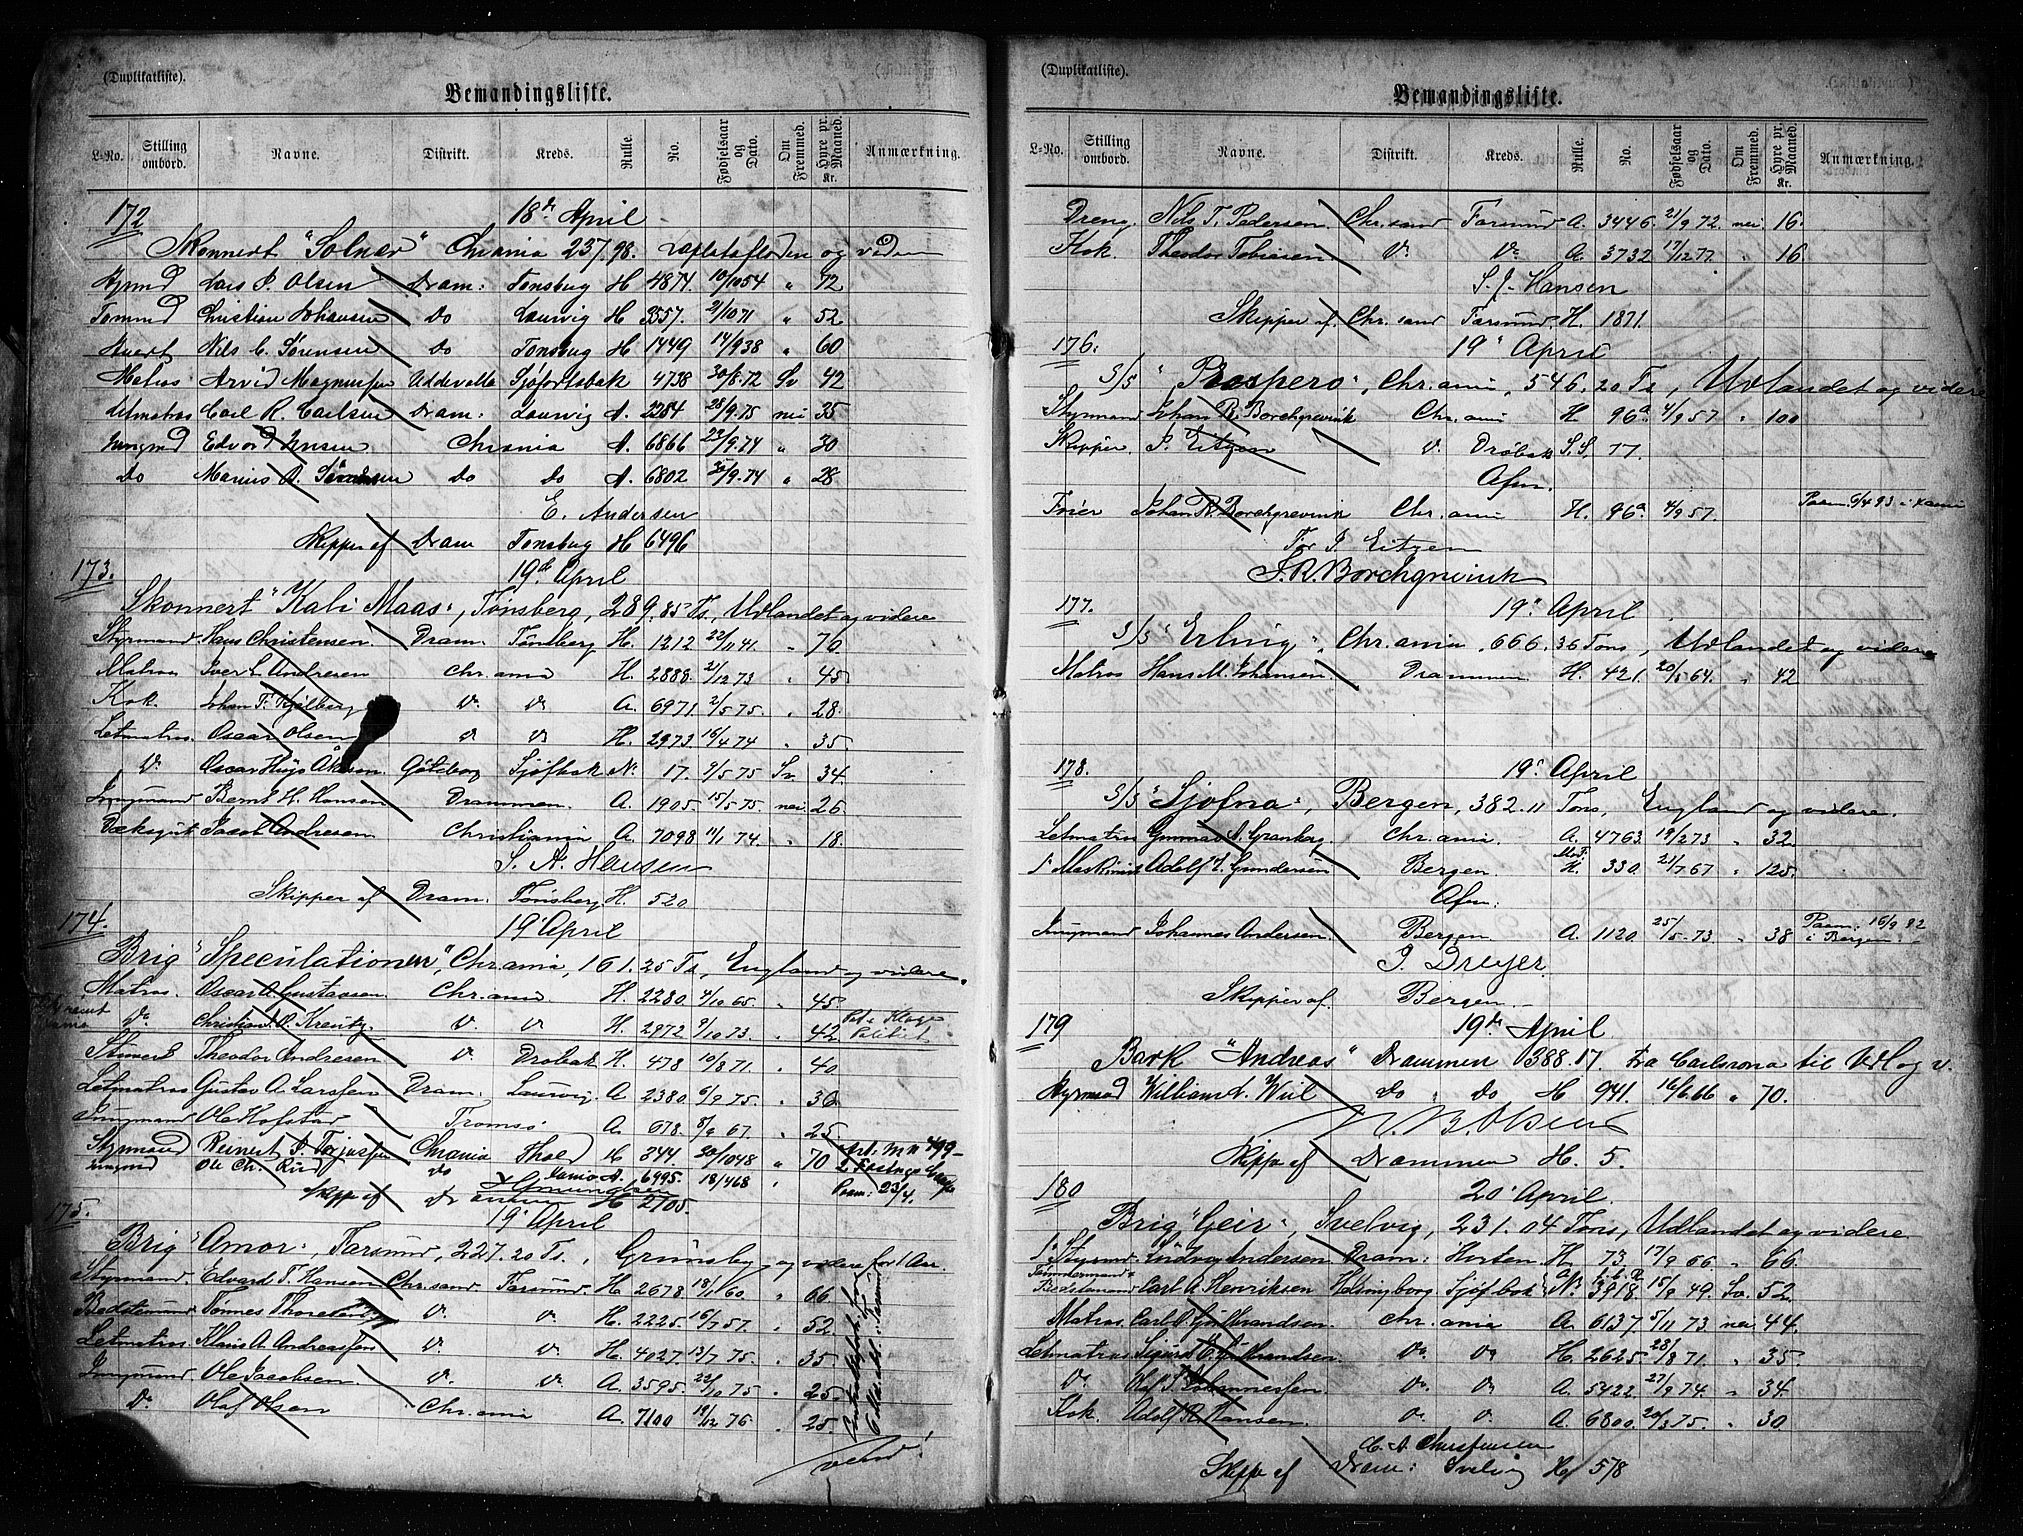 (Duplikatliste).
Bemandingsliste.
L-No. Stilling ombord. Navne. Distrikt. Kreds. Rulle. No. Fødselsaar og Dato. Om Fremmed. Hyre pr. Maaned. Kr. Anmærkning.
172 18de April
Skonnert "Solnær" Chrania 237.98. Laplatafloden og videre
Styrmd Lars P. Olsen Dram: Tønsbug H 4874. 10/10 54 " 72
Tømmd Christian Johansen Do Laurvig H 3557. 2/10 71 " 52
Stuert Nils C. Sørensen Do Tønsbug H 1449 14/9 38 " 60
Matros Arvid Magnussen Uddevalla Sjøfartsbok 4738 30/8.72 Sv 42
Letmatros Carl R. Carlsen Dram: Laurvig A. 2284 28/9.75 nei 35
Jungmd Edvard Jensen Chrania A. 6866 23/9.74 " 30
Do Marius A. Do Do A. 6802 /9.74 " 28
E. Andersen
Skipper af Dram Tønsbug H 6496
173. 19de April
Skonnert "Kali Maas", Tønsberg, 289.85 Ts, Udlandet og videre
Styrmand Hans Christensen Dram. Tønsberg H. 1212 22/11 41. " 70
Matros Iver L. Andresen Chr.ania H. 2888. 2/12 73 " 45
Kok. Johan F. Kjølberg Do Do A. 6971 2/5 75. " 28.
Letmatros Oscar Olsen Do Do H. 2973. 16/4 74 " 35
Do Oscar Hugo Göteborg Sjöfbok N. 17. 9/5 75 Sv 34.
Jungmand Bernt H. Hansen Drammen. A. 1905. 15/5 75. nei 26
Dæksgut Jacob Andresen Christiania A. 7098 11/1 74. " 18.
S. A. Hansen
Skipper af Dram. Tønsberg H. 520.
174. 19' April
Brig "Speculationen", Chr.ania, 161.25 Ts, England og videre.
Matros. Oscar A. Gustavsen. Chr.ania H. 2280 4/10 65. " 45
Do Christian O. Kreutz. Do Do H. 2972 9/10 73. " 42
Stuert Theodor Andresen Do Drøbak H. 478 10/8 71. " 40
Letmatros Gustav A. Larssen Dram. Laurvig. A. 2380 6/9 75. " 30
Jungmand Ole Hofstad Tromsø A. 678. 8/9 67. " 25
Styrmand Reinert P. Torjussen Chrania H 344. 20/10 48 " 70
Jungmd Ole Chr. Ruud Do A. 6995. 18/4 68 "
Skipp af Drammen H 2705.
175. 19' April
Brig "Amor", Farsund, 227.20 Ts., Grimsby og videre for 1 Aar.
Styrmand. Edvard T. Hansen Chr.sand Farsund H 2678 18/1 60. " 66
Bedstemand Tønnes Do Do H. 2225. 16/7 57. " 52.
Letmatros Klaus A. Andreassen Do Do H. 4027. 13/7 75. " 35
Jungmand Ole Jacobsen Do Do A. 3595. 22/10 75 " 25
Do Olaf Olsen Chr.ania A. 7100 19/12 76 " 25.
vend!
(Duplikatliste).
Bemandingsliste.
L-No. Stilling ombord. Navne. Distrikt. Kreds. Rulle. No. Fødselsaar og Dato. Om Fremmed. Hyre pr. Maaned. Kr. Anmærkning.
Dreng. Nils T. Pedersen Chr.sand Farsund A. 3446. 21/9 72. nei 16.
Kok. Theodor Tobiasen Do Do A. 3732 17/12 77. " 16
S. J. Hansen
Skipper af. Chr.sand Farsund. H. 1871.
176. 19' April
S/S "Prospero", Chr.ania, 546.20 Ts, Udlandet og videre
Styrmand Johan R. Borchgrevink Chr.ania H. 96a 4/9 57 " 100
Skipper P. Eitzen Do Drøbak S.S. 77.
Afm.
Feier Johan R. Borchgrevink Chr.ania H. 96a. 4/9 57. Paam. 6/4 93 i
For P. Eitzen
J. R. Borchgrevink
177. 19' April
S/S "Erling", Chr.ania, 666.36 Tons, Udlandet og videre
Matros Hans M. Johansen Drammen H. 421. 20/5 64. " 42
178. 19' April
S/S "Sjofna", Bergen, 382.11 Tons, England og videre.
Letmatros Gunnar A. Granberg Chr.ania A. 4763. 19/2 73 " 32
1' Maskinist Adolf E. Gundersen Bergen H. 330. 21/7 67 " 125.
Afm:
Jungmand Johannes Andersen. Bergen A. 1120. 25/5.73. " 38 Paam: 16/9 92 i Bergen
J. Dreyer.
Skipper af. Bergen.
179 19de April
Bark "Andreas" Drammen 388.17. fra Carlsrona til Udl og v.
Styrmand William L. Wiil Do Do H 941. 16/6.66 " 70.
B. Olsen
Skipp af Drammen H. 5.
180 20' April.
Brig "Geir", Svelvig, 231.04 Tons, Udlandet og videre
1' Styrmd Ludvig Andersen Dram: Horten H. 73 17/9 66 " 66
Tømmermand Bedstemand Carl A. Henriksen Helsingborg Sjöfbok N. 3918. 15/9 49. Sv. 52.
Matros Carl O. Gulbrandsen Chr.ania A. 6137 5/11 73 nei 44.
Letmatros Sigurd E. Gulbrandsen. Do Do H. 2625. 28/8 71. " 35.
Do Olaf S. Johannessen Do Do A. 5422. 27/9 74 " 34.
Kok. Adolf R. Hansen. Do Do A. 6800. 20/3 75. " 30
C. A. Christensen
Skipp af Dram: Svelvig H 578